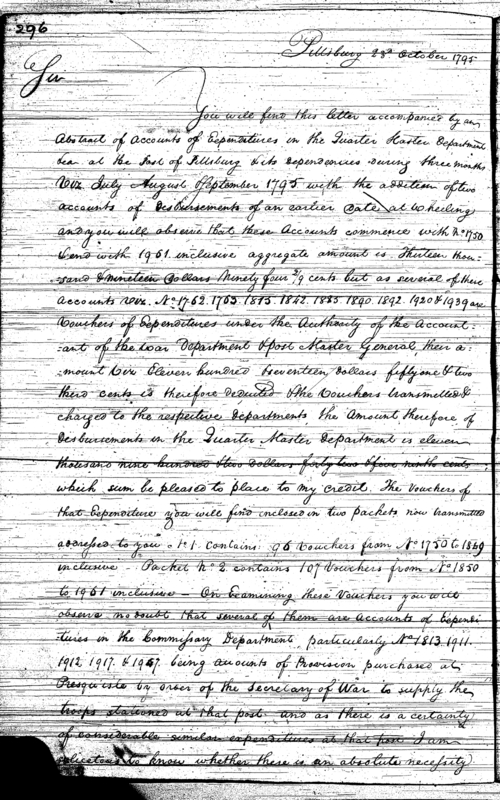 296
Pittsburg 23d October 1795
Sir
You will find this letter accompanied by an
Abstract of Accounts of Expenditures in the Quarter Master Department
at the Post of Pittsburg & its dependencies during three months
Viz. July August September 1795 with the addition of two
accounts of disbursements of an earlier date, at Wheeling
and you will observe that these Accounts commence with No 1750
& end with 1961 inclusive aggregate amount is Thirteen thou-
-sand & nineteen Dollars Ninety four 2/9 cents but as several of these
accounts Viz. No 1762. 1763. 1813. 1842. 1885. 1890. 1892. 1920 & 1939 are
Vouchers of Expenditures under the Authority of the Account-
-ant of the War Department & post Master General, their a-
-mount Viz Eleven hundred & seventeen dollars fifty one & two
third cents is therefore deducted & the Vouchers transmitted &
charged to the respective departments, the amount therefore of
disbursements in the Quarter Master department is eleven
thousand nine hundred & two dollars forty two & five ninth cents
which sum be pleased to place to my credit. The Vouchers of
that Expenditure you will find inclosed in two packets now transmitted
addressed to you No 1. contains 96 Vouchers from No 1750 to 1849
inclusive - Packet No 2. contains 107 Vouchers from No 1850
to 1961 inclusive - On Examining these Vouchers you will
observe no doubt that several of them are accounts of Expendi-
-tures in the Commissary Department, particularly No 1813. 1911.
1912. 1917. & 1957. being amounts of Provision purchased at
Presquisle by order of the Secretary of War to supply the
troops stationed at that post. and as there is a certainty
of considerable similar expenditures at that post I am
solicitous to know whether there is an absolute necessity